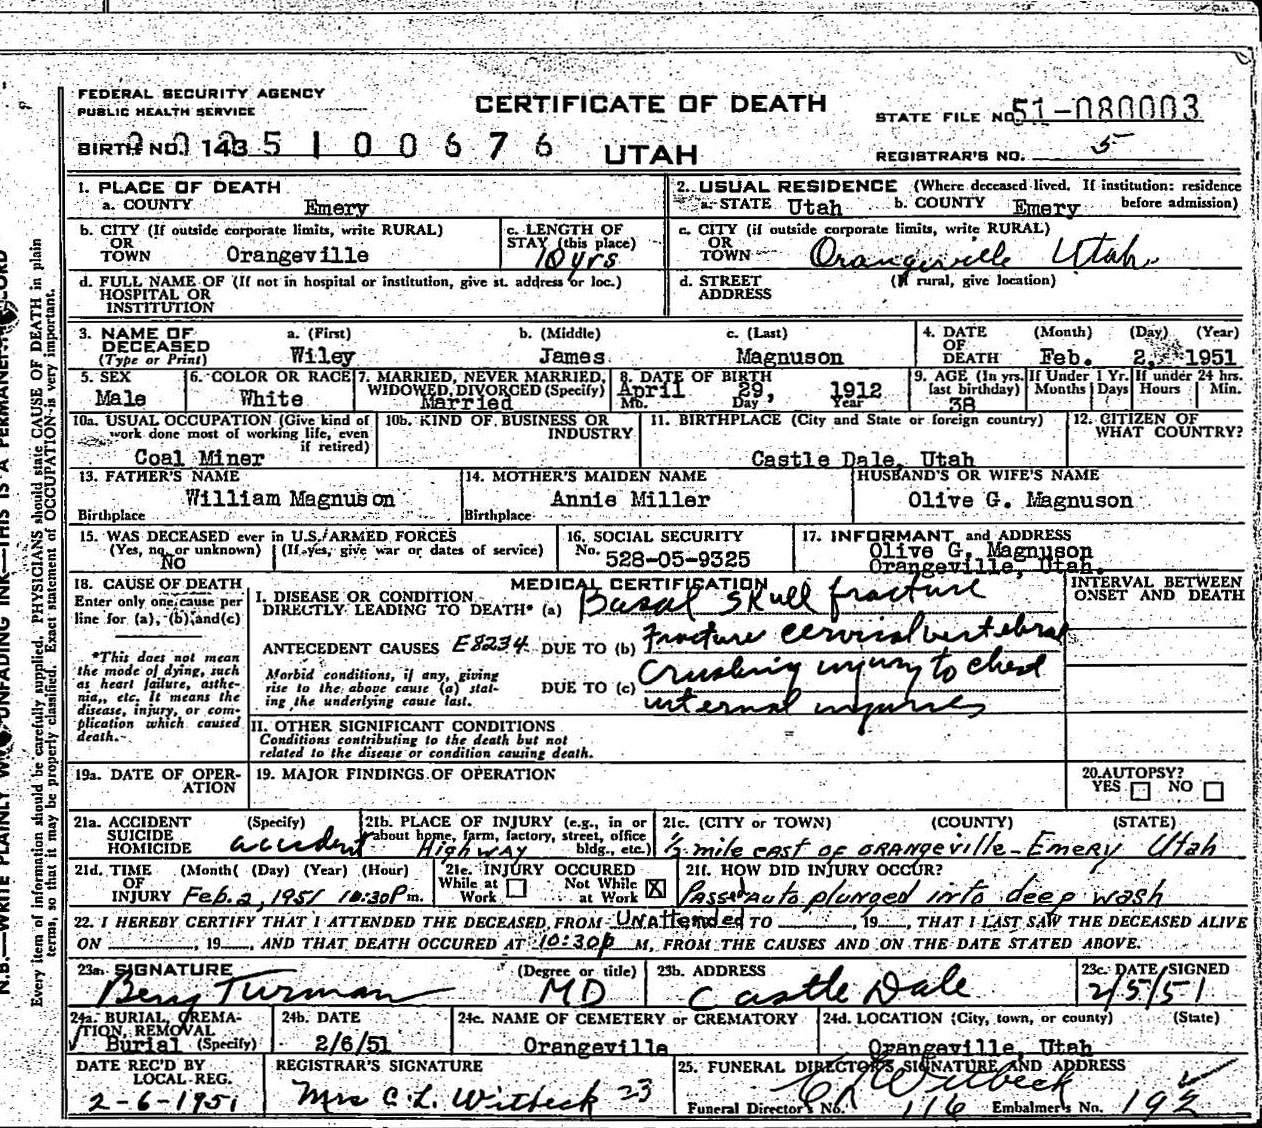 FEDERAL SECURITY AGENCY
PUBLIC HEALTH SERVICE
CERTIFICATE OF DEATH
STATE FILE NO. 51-080003
BIRTH NO. 143 5100676
UTAH
REGISTRAR'S NO. 5
1. PLACE OF DEATH
a. COUNTY Emery
2. USUAL RESIDENCE (Where deceased lived. If institution: residence before admission)
a. STATE Utah b. COUNTY Emery
b. CITY (If outside corporate limits, write RURAL) OR TOWN Orangeville
c. LENGTH OF STAY (this place) 10 yrs
c. CITY (if outside corporate limits, write RURAL) OR TOWN Orangeville Utah
d. FULL NAME OF (If not in hospital or institution, give st. address or loc.) HOSPITAL OR INSTITUTION
d. STREET ADDRESS (If rural, give location)
3. NAME OF DECEASED (Type or Print)
a. (First) Wiley
b. (Middle) James
c. (Last) Magnuson
4. DATE OF DEATH (Month) (Day) (Year) Feb. 2, 1951
5. SEX Male
6. COLOR OR RACE White
7. MARRIED, NEVER MARRIED, WIDOWED, DIVORCED (Specify) Married
8. DATE OF BIRTH April 29, 1912
Mo. Day Year
9. AGE (In yrs. last birthday) 38
If Under 1 Yr. Months Days
If under 24 hrs. Hours Min.
10a. USUAL OCCUPATION (Give kind of work done most of working life, even if retired) Coal Miner
10b. KIND OF BUSINESS OR INDUSTRY
11. BIRTHPLACE (City and State or foreign country) Castle Dale, Utah
12. CITIZEN OF WHAT COUNTRY?
13. FATHER'S NAME William Magnuson
Birthplace
14. MOTHER'S MAIDEN NAME Annie Miller
Birthplace
HUSBAND'S OR WIFE'S NAME Olive G. Magnuson
15. WAS DECEASED ever in U.S. ARMED FORCES
(Yes, no, or unknown) No (If yes, give war or dates of service)
16. SOCIAL SECURITY No. 528-05-9325
17. INFORMANT and ADDRESS
Olive G. Magnuson
Orangeville, Utah.
18. CAUSE OF DEATH
Enter only one cause per line for (a), (b), and (c)
*This does not mean the mode of dying, such as heart failure, asthenia, etc. It means the disease, injury, or complication which caused death.
MEDICAL CERTIFICATION
INTERVAL BETWEEN ONSET AND DEATH
I. DISEASE OR CONDITION DIRECTLY LEADING TO DEATH* (a) Basal Skull fracture
ANTECEDENT CAUSES E8234 DUE TO (b) Fracture cervical vertebrae
Morbid conditions, if any, giving rise to the above cause (a) stating the underlying cause last.
DUE TO (c) Crushing injury to chest
internal injuries
II. OTHER SIGNIFICANT CONDITIONS
Conditions contributing to the death but not related to the disease or condition causing death.
19a. DATE OF OPERATION
19. MAJOR FINDINGS OF OPERATION
20. AUTOPSY? YES NO
21a. ACCIDENT SUICIDE HOMICIDE (Specify) accident
21b. PLACE OF INJURY (e.g., in or about home, farm, factory, street, office bldg., etc.) Highway
21c. (CITY or TOWN) (COUNTY) (STATE)
½ mile east of Orangeville - Emery Utah
21d. TIME OF INJURY (Month) (Day) (Year) (Hour) Feb. 2, 1951 10:30P m.
21e. INJURY OCCURED While at Work Not While at Work X
21f. HOW DID INJURY OCCUR?
auto plunged into deep wash
22. I HEREBY CERTIFY THAT I ATTENDED THE DECEASED FROM Unattended TO , 19 , THAT I LAST SAW THE DECEASED ALIVE
ON , 19 , AND THAT DEATH OCCURED AT 10:30p M, FROM THE CAUSES AND ON THE DATE STATED ABOVE.
23a. SIGNATURE Turman (Degree or title) MD
23b. ADDRESS Castle Dale
23c. DATE SIGNED 2/5/51
24a. BURIAL, CREMATION, REMOVAL (Specify) Burial
24b. DATE 2/6/51
24c. NAME OF CEMETERY or CREMATORY Orangeville
24d. LOCATION (City, town, or county) (State) Orangeville, Utah
DATE REC'D BY LOCAL REG. 2-6-1951
REGISTRAR'S SIGNATURE Mrs C. L. Witbeck 23
25. FUNERAL DIRECTOR'S SIGNATURE AND ADDRESS Witbeck
Funeral Director's No. 116 Embalmer's No.
N.B.—WRITE PLAINLY UNFADING INK—THIS IS A PERMANENT RECORD
Every item of information should be carefully supplied. PHYSICIANS should state CAUSE OF DEATH in plain
terms, so that it may be properly classified. Exact statement of OCCUPATION is very important.